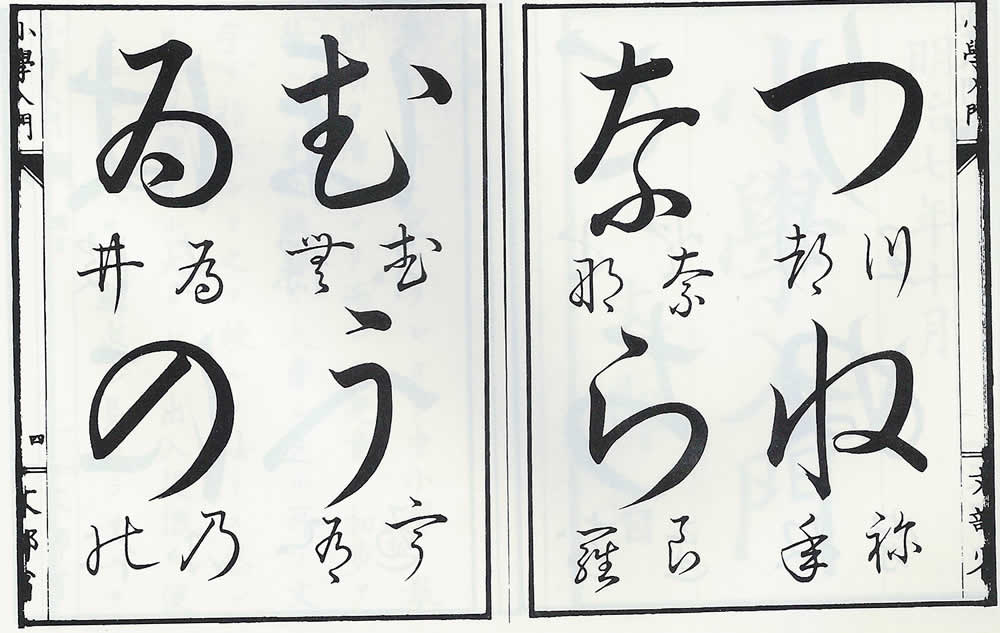 小學入門
文部省
つ
川 都
ね
祢 年
な
奈 那
ら
良 羅
む
武 無
う
宇 有
ゐ
為 井
の
乃 能
小學入門
四
文部省